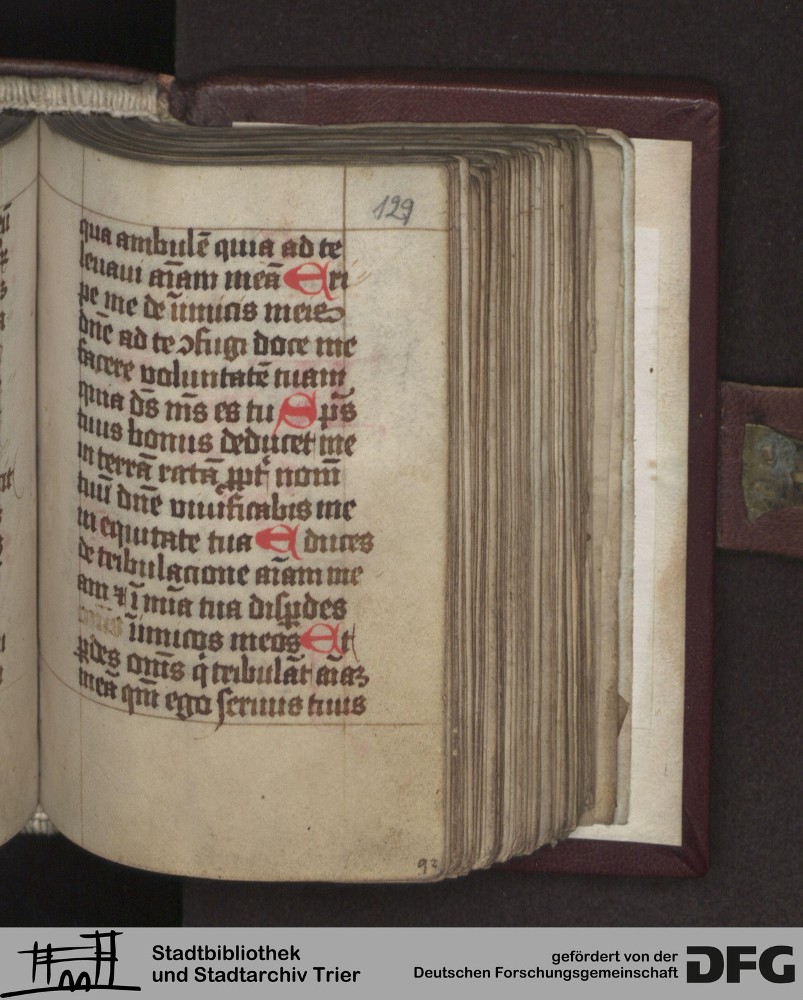 129
qua ambulē quia ad te
leuaui aīam meā Eri
pe me de inimicis meis
dn̄e ad te ɔfugi doce me
facere voluntatē tuam
quia ds̄ ms̄ es tu Sp̄s
tuus bonus deducet me
in terrā rectā ꝓpt̄ nom̄
tuū dn̄e viuificabis me
in equitate tua Educes
de tribulacione aīam me
am ⁊ ī mīa tua disꝑdes
inimicos meos Et
ꝑdes om̄s q̇ tribulāt aīaꝫ
meā qm̄ ego seruus tuus
93
Stadtbibliothek
und Stadtarchiv Trier
gefördert von der
Deutschen Forschungsgemeinschaft
DFG